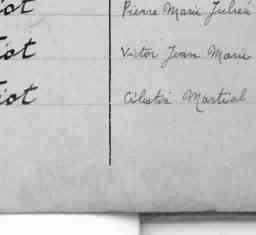 iot Pierre Marie Julien
iot Victor Jean Marie
iot Célestin Martial